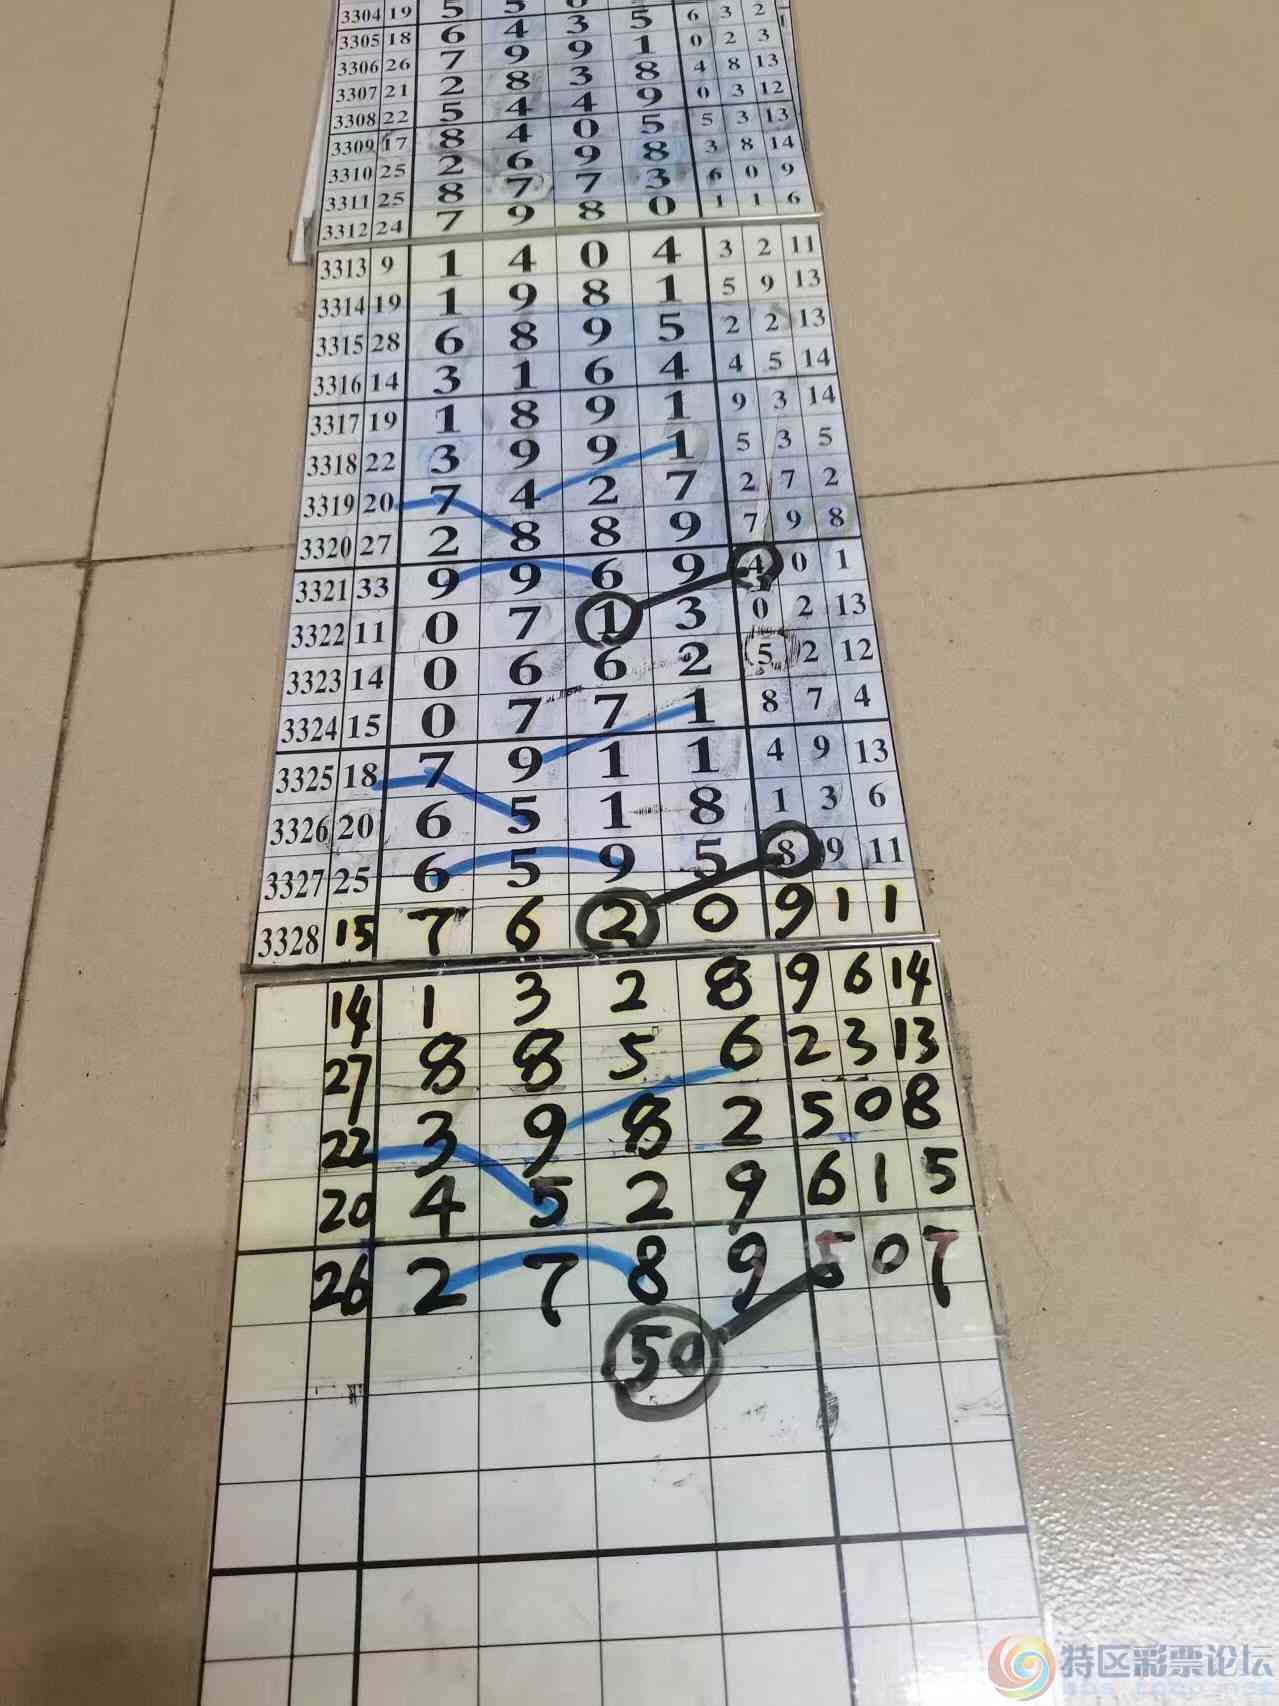 3304 19 5 5 0 5 6 3 2
3305 18 6 4 3 5 0 2 3
3306 26 7 9 9 1 4 8 13
3307 21 2 8 3 8 0 3 12
3308 22 5 4 4 9 5 3 13
3309 17 8 4 0 5 3 8 14
3310 25 2 6 9 8 6 0 9
3311 25 8 7 7 3 1 1 6
3312 24 7 9 8 0
3313 9 1 4 0 4 3 2 11
3314 19 1 9 8 1 5 9 13
3315 28 6 8 9 5 2 2 13
3316 14 3 1 6 4 4 5 14
3317 19 1 8 9 1 9 3 14
3318 22 3 9 9 1 5 3 5
3319 20 7 4 2 7 2 7 2
3320 27 2 8 8 9 7 9 8
3321 33 9 9 6 9 4 0 1
3322 11 0 7 1 3 0 2 13
3323 14 0 6 6 2 5 2 12
3324 15 0 7 7 1 8 7 4
3325 18 7 9 1 1 4 9 13
3326 20 6 5 1 8 1 3 6
3327 25 6 5 9 5 8 9 11
3328 15 7 6 2 0 9 1 1
14 1 3 2 8 9 6 14
27 8 8 5 6 2 3 13
22 3 9 8 2 5 0 8
20 4 5 2 9 6 1 5
26 2 7 8 9 5 0 7
50
特区彩票论坛